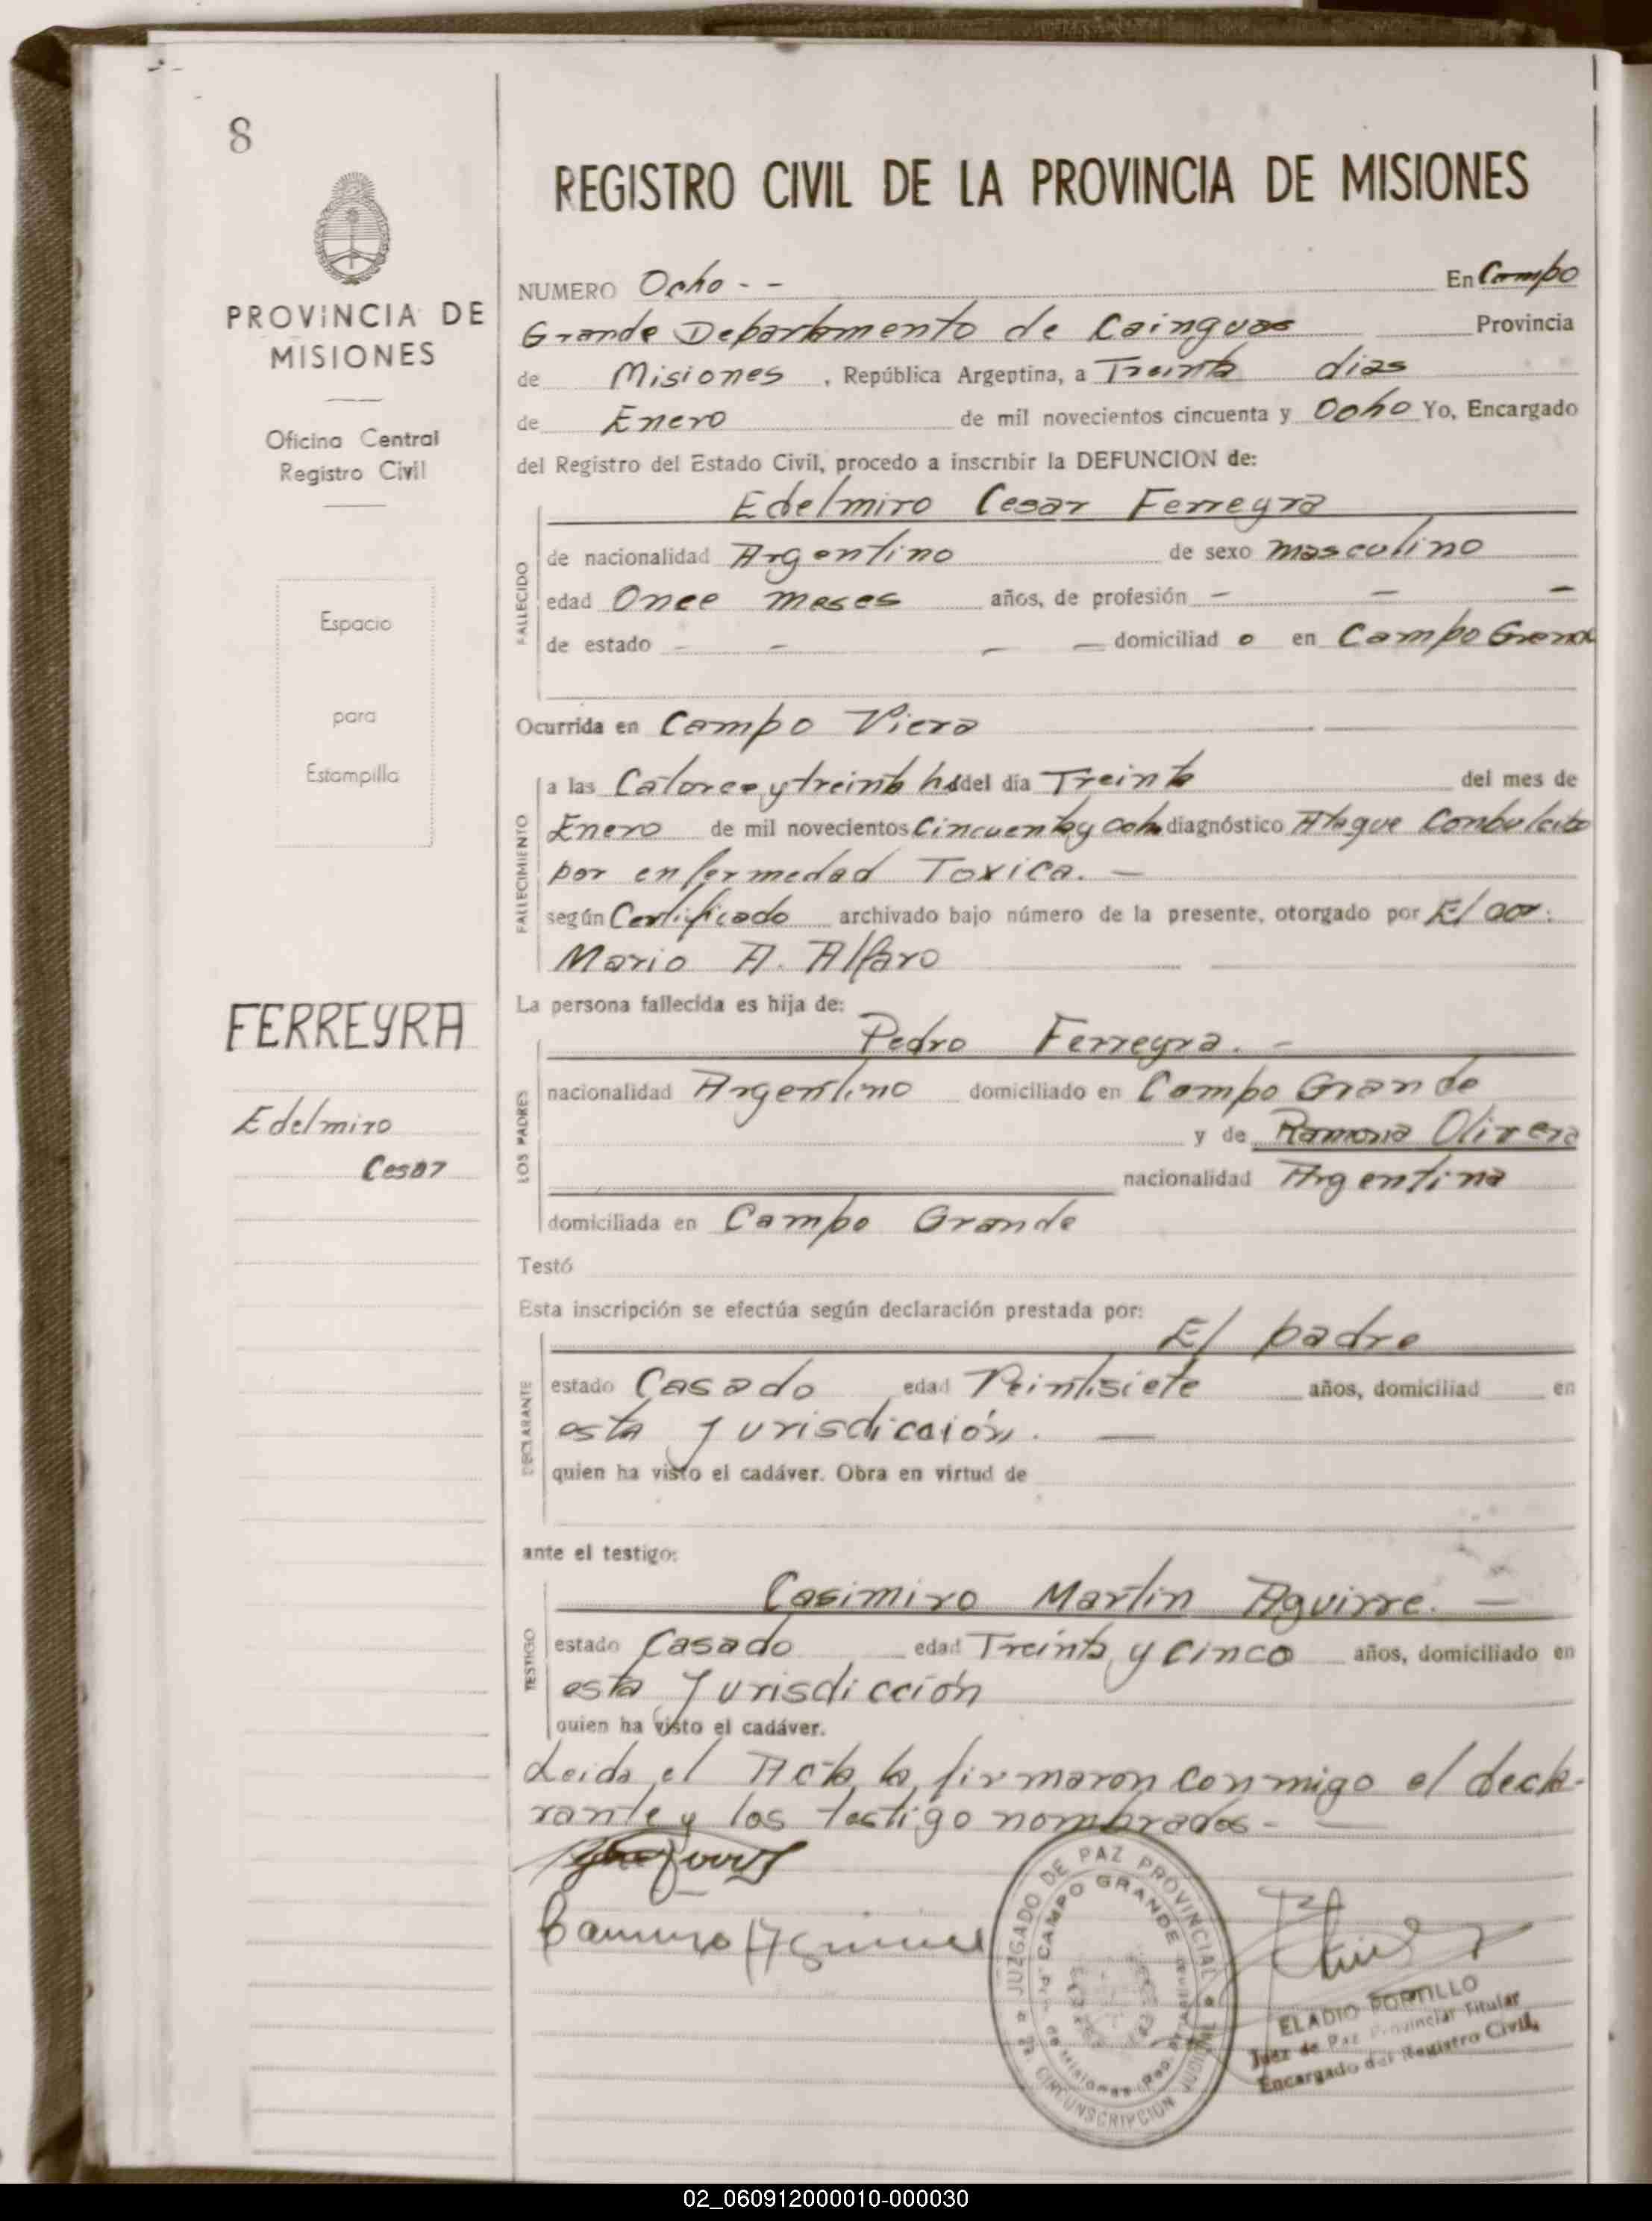 8
PROVINCIA DE
MISIONES
Oficina Central
Registro Civil
Espacio
para
Estampilla
FERREYRA
Edelmiro
Cesar
REGISTRO CIVIL DE LA PROVINCIA DE MISIONES
NUMERO Ocho - - En Campo
Grande Departamento de Cainguas Provincia
de Misiones , República Argentina, a Treinta dias
de Enero de mil novecientos cincuenta y Ocho Yo, Encargado
del Registro del Estado Civil, procedo a inscribir la DEFUNCION de:
Edelmiro Cesar Ferreyra
FALLECIDO
de nacionalidad Argentino de sexo masculino
edad Once meses años, de profesión - - -
de estado - - - - domiciliad o en Campo Grande
Ocurrida en Campo Viera
FALLECIMIENTO
a las Catorce y treinta hs del día Treinta del mes de
Enero de mil novecientos Cincuenta y Ocho diagnóstico Ataque
por enfermedad Toxica. -
según Certificado archivado bajo número de la presente, otorgado por El
Mario A. Alfaro
La persona fallecida es hija de:
Pedro Ferreyra. -
LOS PADRES
nacionalidad Argentino domiciliado en Campo Grande
y de Ramona Olivera
nacionalidad Argentina
domiciliada en Campo Grande
Testó
Esta inscripción se efectúa según declaración prestada por:
El padre
DECLARANTE
estado Casado edad Veintisiete años, domiciliad en
esta Jurisdicción. -
quien ha visto el cadáver. Obra en virtud de
ante el testigo:
Casimiro Martin Aguirre. -
TESTIGO
estado Casado edad Treinta y cinco años, domiciliado en
esta Jurisdicción
quien ha visto el cadáver.
Leida el Acta la firmaron conmigo el decla-
rante y los testigo nombrados -
JUZGADO DE PAZ PROVINCIAL
CAMPO GRANDE
2a. CIRCUNSCRIPCION JUDICIAL
ELADIO PORTILLO
Juez de Paz Provincial Titular
Encargado del Registro Civil
02_060912000010-000030